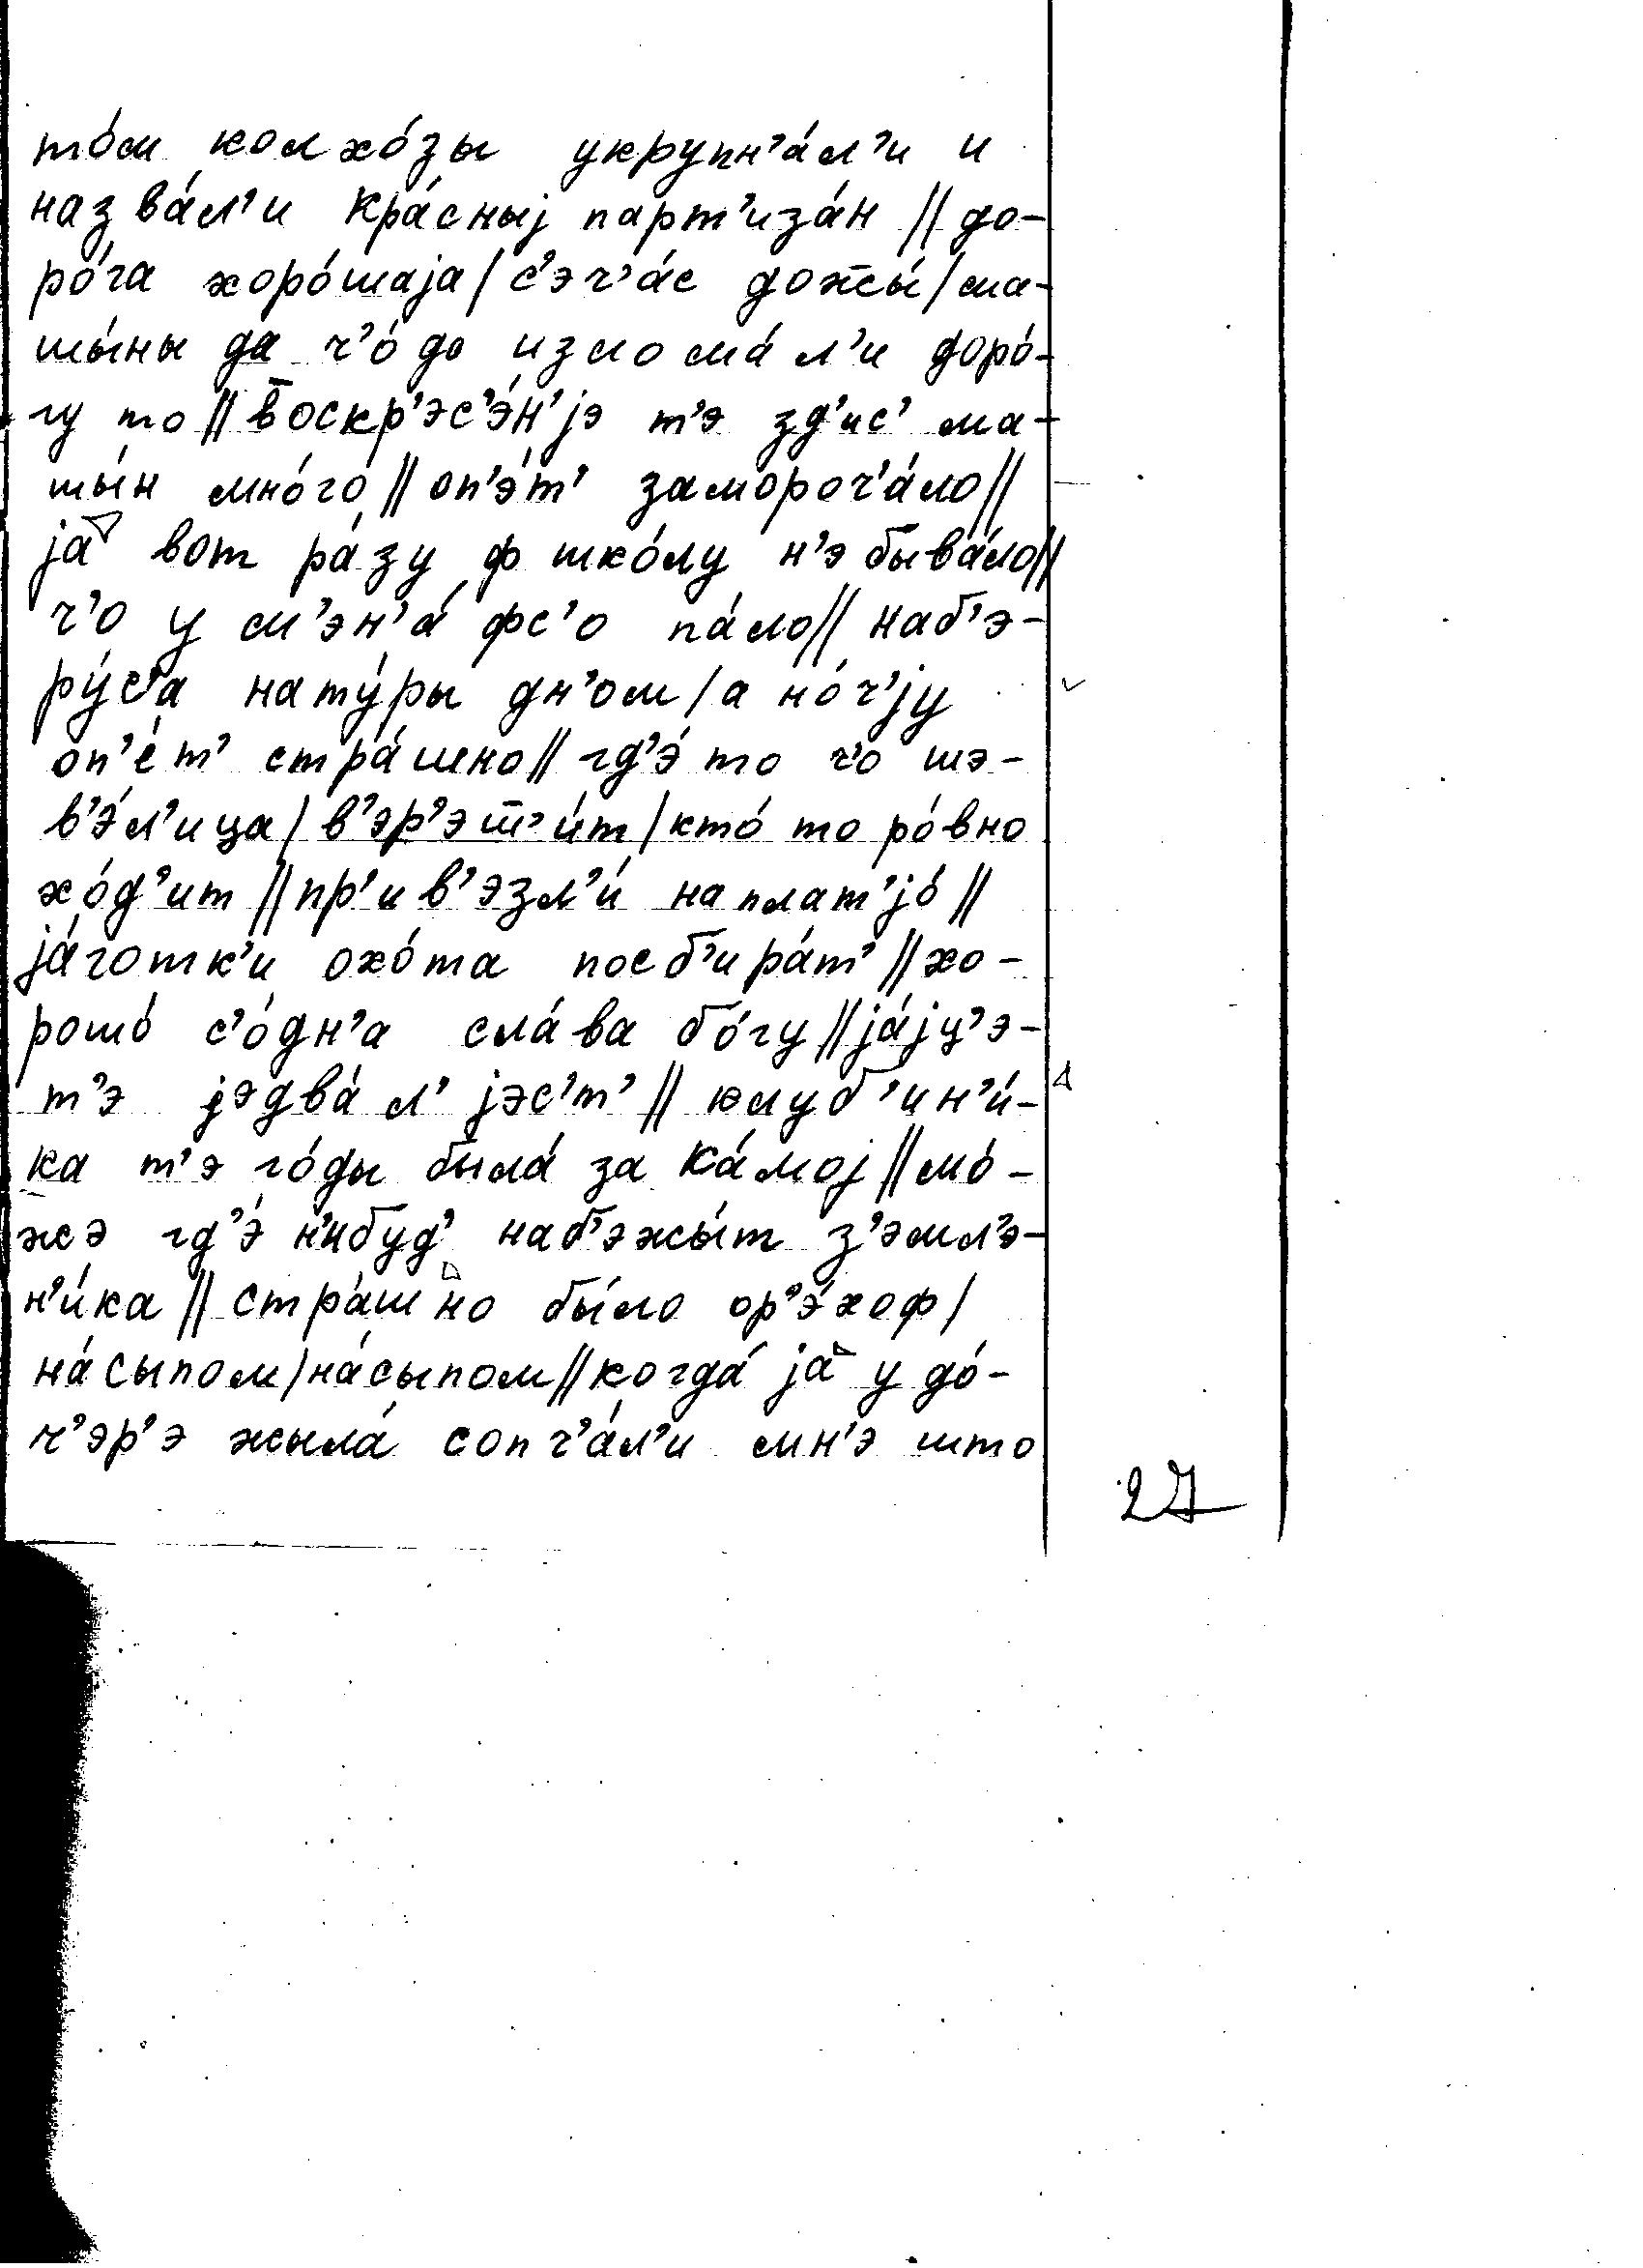 то́м колхо́зы укрупн'а́л'и и
назва́л'и кра́сныj парт'иза́н // до-
ро́га хоро́шаjа / с'эч'а́с дожжы́ / ма-
шы́ны да ч'о́ до изломáл'и доро́-
гу то // воскр'эс'э́н'jэ т'э зд'ис' ма-
шы́н мно́го // оп'э́т' замороч'а́ло //
jа вот ра́зу ф шко́лу н'э быва́ло //
ч'о у м'эн'а́ фс'о па́ло // наб'э-
ру́с'а нату́ры дн'ом / а но́ч'jу
оп'е́т' стра́шно // гд'э́ то ч'о шэ-
в'э́л'ица / в'эр'эш'и́т / кто́ то ро́вно
хо́д'ит // пр'ив'эзл'и́ на плат'jо́ //
jа́готк'и охо́та пособ'ира́т' // хо-
рошо́ с'о́дн'а сла́ва бо́гу // jа́jц'э-
т'э jэдва́ л' jэс'т' // клуб'ин'и́-
ка т'э го́ды была́ за ка́моj // мо́-
жэ гд'э́ н'ибуд' наб'эжы́т з'эмл'э-
н'и́ка // стра́шно бы́ло ор'э́хоф /
на́сыпом / на́сыпом // когда́ jа у до́-
ч'эр'э жыла́ сопч'а́л'и мн'э што
27